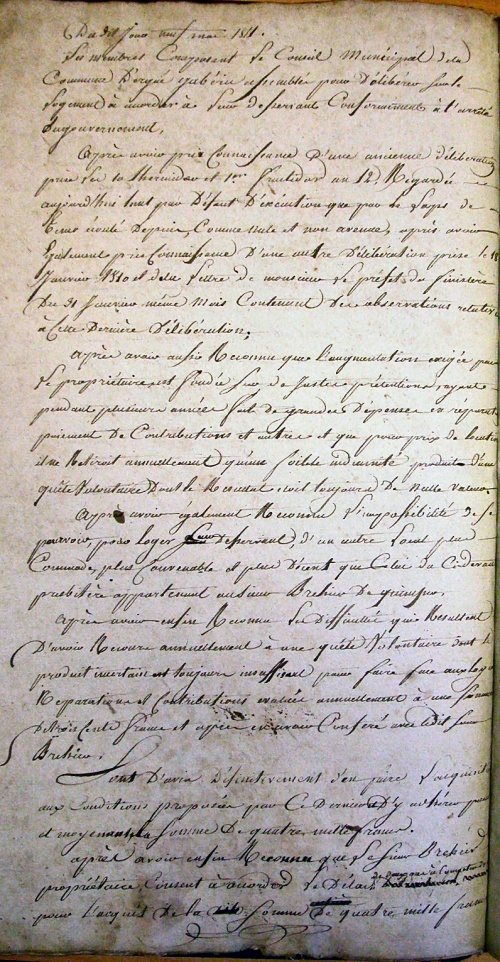 Du dit jour neuf mai 1811.
Les membres Composant Le Conseil Municipal de la
Commune D'ergué gabéric assemblés pour Délibérer sur le
Logement à accorder à Leur desservant Conformément à l'arrêté
du gouvernement,
Après avoir pris Connaissance D'une ancienne délibération
prise Le 10 thermidor et 1er fructidor an 12, Regardée
aujourd'hui tant par Défaut D'exécution que par Le Laps de
tems écoulé Depuis, Comme nulle et non avenue, après avoir
également pris Connaissance D'une autre Délibération prise le
Janvier 1810 et de la Lettre de monsieur Le préfet du finistère
Du 31 Janvier même mois Contenant Des observations relatives
à Cette Dernière Délibération,
Après avoir aussi Reconnu que L'augmentation exigée par
Le propriétaire est fondée sur de Justes prétentions, ayant
pendant plusieurs années fait de grandes Dépenses en réparations
paiement De Contributions et autres et que pour prix de location
il ne Retiroit annuellement qu'une foible indemnité produit d'une
quête Volontaire Dont le Résultat étoit toujours De nulle valeur.
Après avoir également Reconnu L'impossibilité de se
pourvoir, pour loger Leur Desservant, d'un autre Local plus
Commode, plus Convenable et plus Décent que Celui du Ci-devant
presbitère appartenant au sieur Bréhier De quimper,
Après avoir enfin Reconnu Les Difficultés qui Résultent
D'avoir Recours annuellement à une quête Volontaire dont le
produit incertain est toujours insuffisant pour faire face aux loyers
Réparations et Contributions évalués annuellement à une somme
de trois cents francs et après en avoir Conféré avec ledit sieur
Bréhier,
Sont D'avis Définitivement d'en faire L'acquisition
aux Conditions proposées par Ce Dernier et D'y adhérer pour
et moyennant la somme De quatre mille francs.
après avoir enfin Reconnu que Le sieur Bréhier
propriétaire, Consent à accorder Le Délai
pour L'acquit De la somme De quatre mille francs